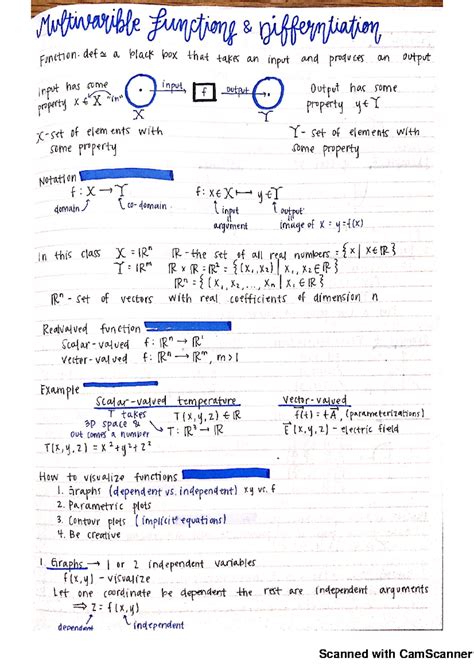 Multivarible Functions & Differntiation
Function: def≃ a black box that takes an input and produces an output
input has some property x ∈ X "in"
input f output
X Y
Output has some property y ∈ Y
X-set of elements with some property
Y- set of elements with some property
Notation
f: X → Y f: x ∈ X ⟼ y ∈ Y
domain co-domain input argument output image of x = y = f(x)
In this class X = ℝⁿ ℝ - the set of all real numbers = {x | x ∈ ℝ}
Y = ℝᵐ ℝ x ℝ = ℝ² = {(x₁, x₂) | x₁, x₂ ∈ ℝ}
ℝⁿ = {(x₁, x₂, ..., xₙ | xᵢ ∈ ℝ}
ℝⁿ - set of vectors with real coefficients of dimension n
Realvalued function
Scalar-valued f: ℝⁿ → ℝ¹
Vector-valued f: ℝⁿ → ℝᵐ, m>1
Example
Scalar-valued temperature Vector-valued
T takes 3D space & out comes a number
T(x,y,z) ∈ ℝ f(t) = +A, (parameterizations)
T: ℝ³ → ℝ E(x,y,z) - electric field
T(x,y,z) = x²+y²+z²
How to visualize functions
1. Graphs (dependent vs. independent) xy vs. f
2. Parametric plots
3. Contour plots (implicit equations)
4. Be creative
1. Graphs → 1 or 2 independent variables
f(x,y) - visualize
Let one coordinate be dependent the rest are independent arguments
⇒ z = f(x,y)
dependent independent
Scanned with CamScanner